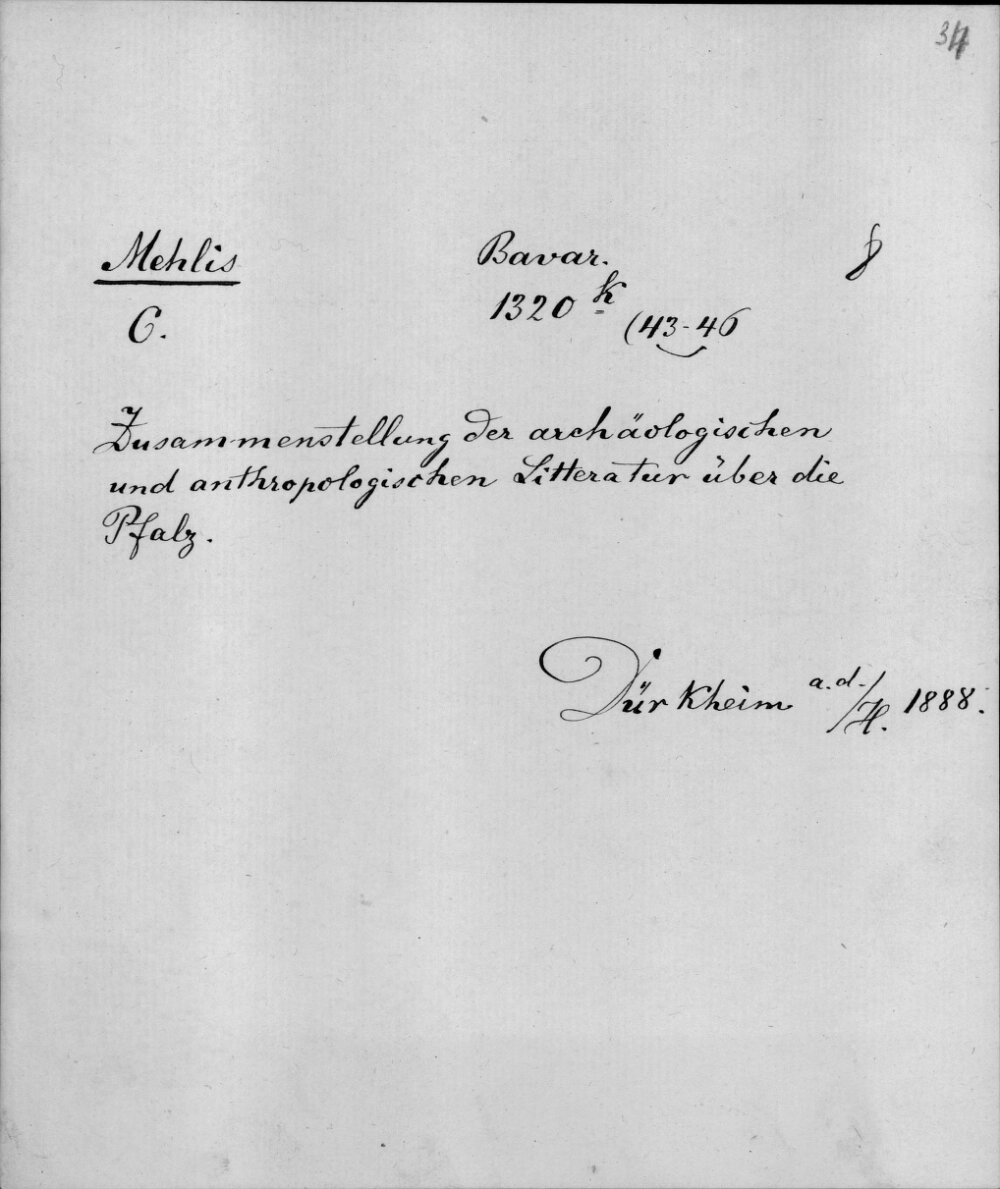 34
Mehlis
C.
Bavar.
1320 k
(43-46
8
Zusammenstellung der archäologischen
und anthropologischen Litteratur über die
Pfalz.
Dürkheim a.d./H. 1888.